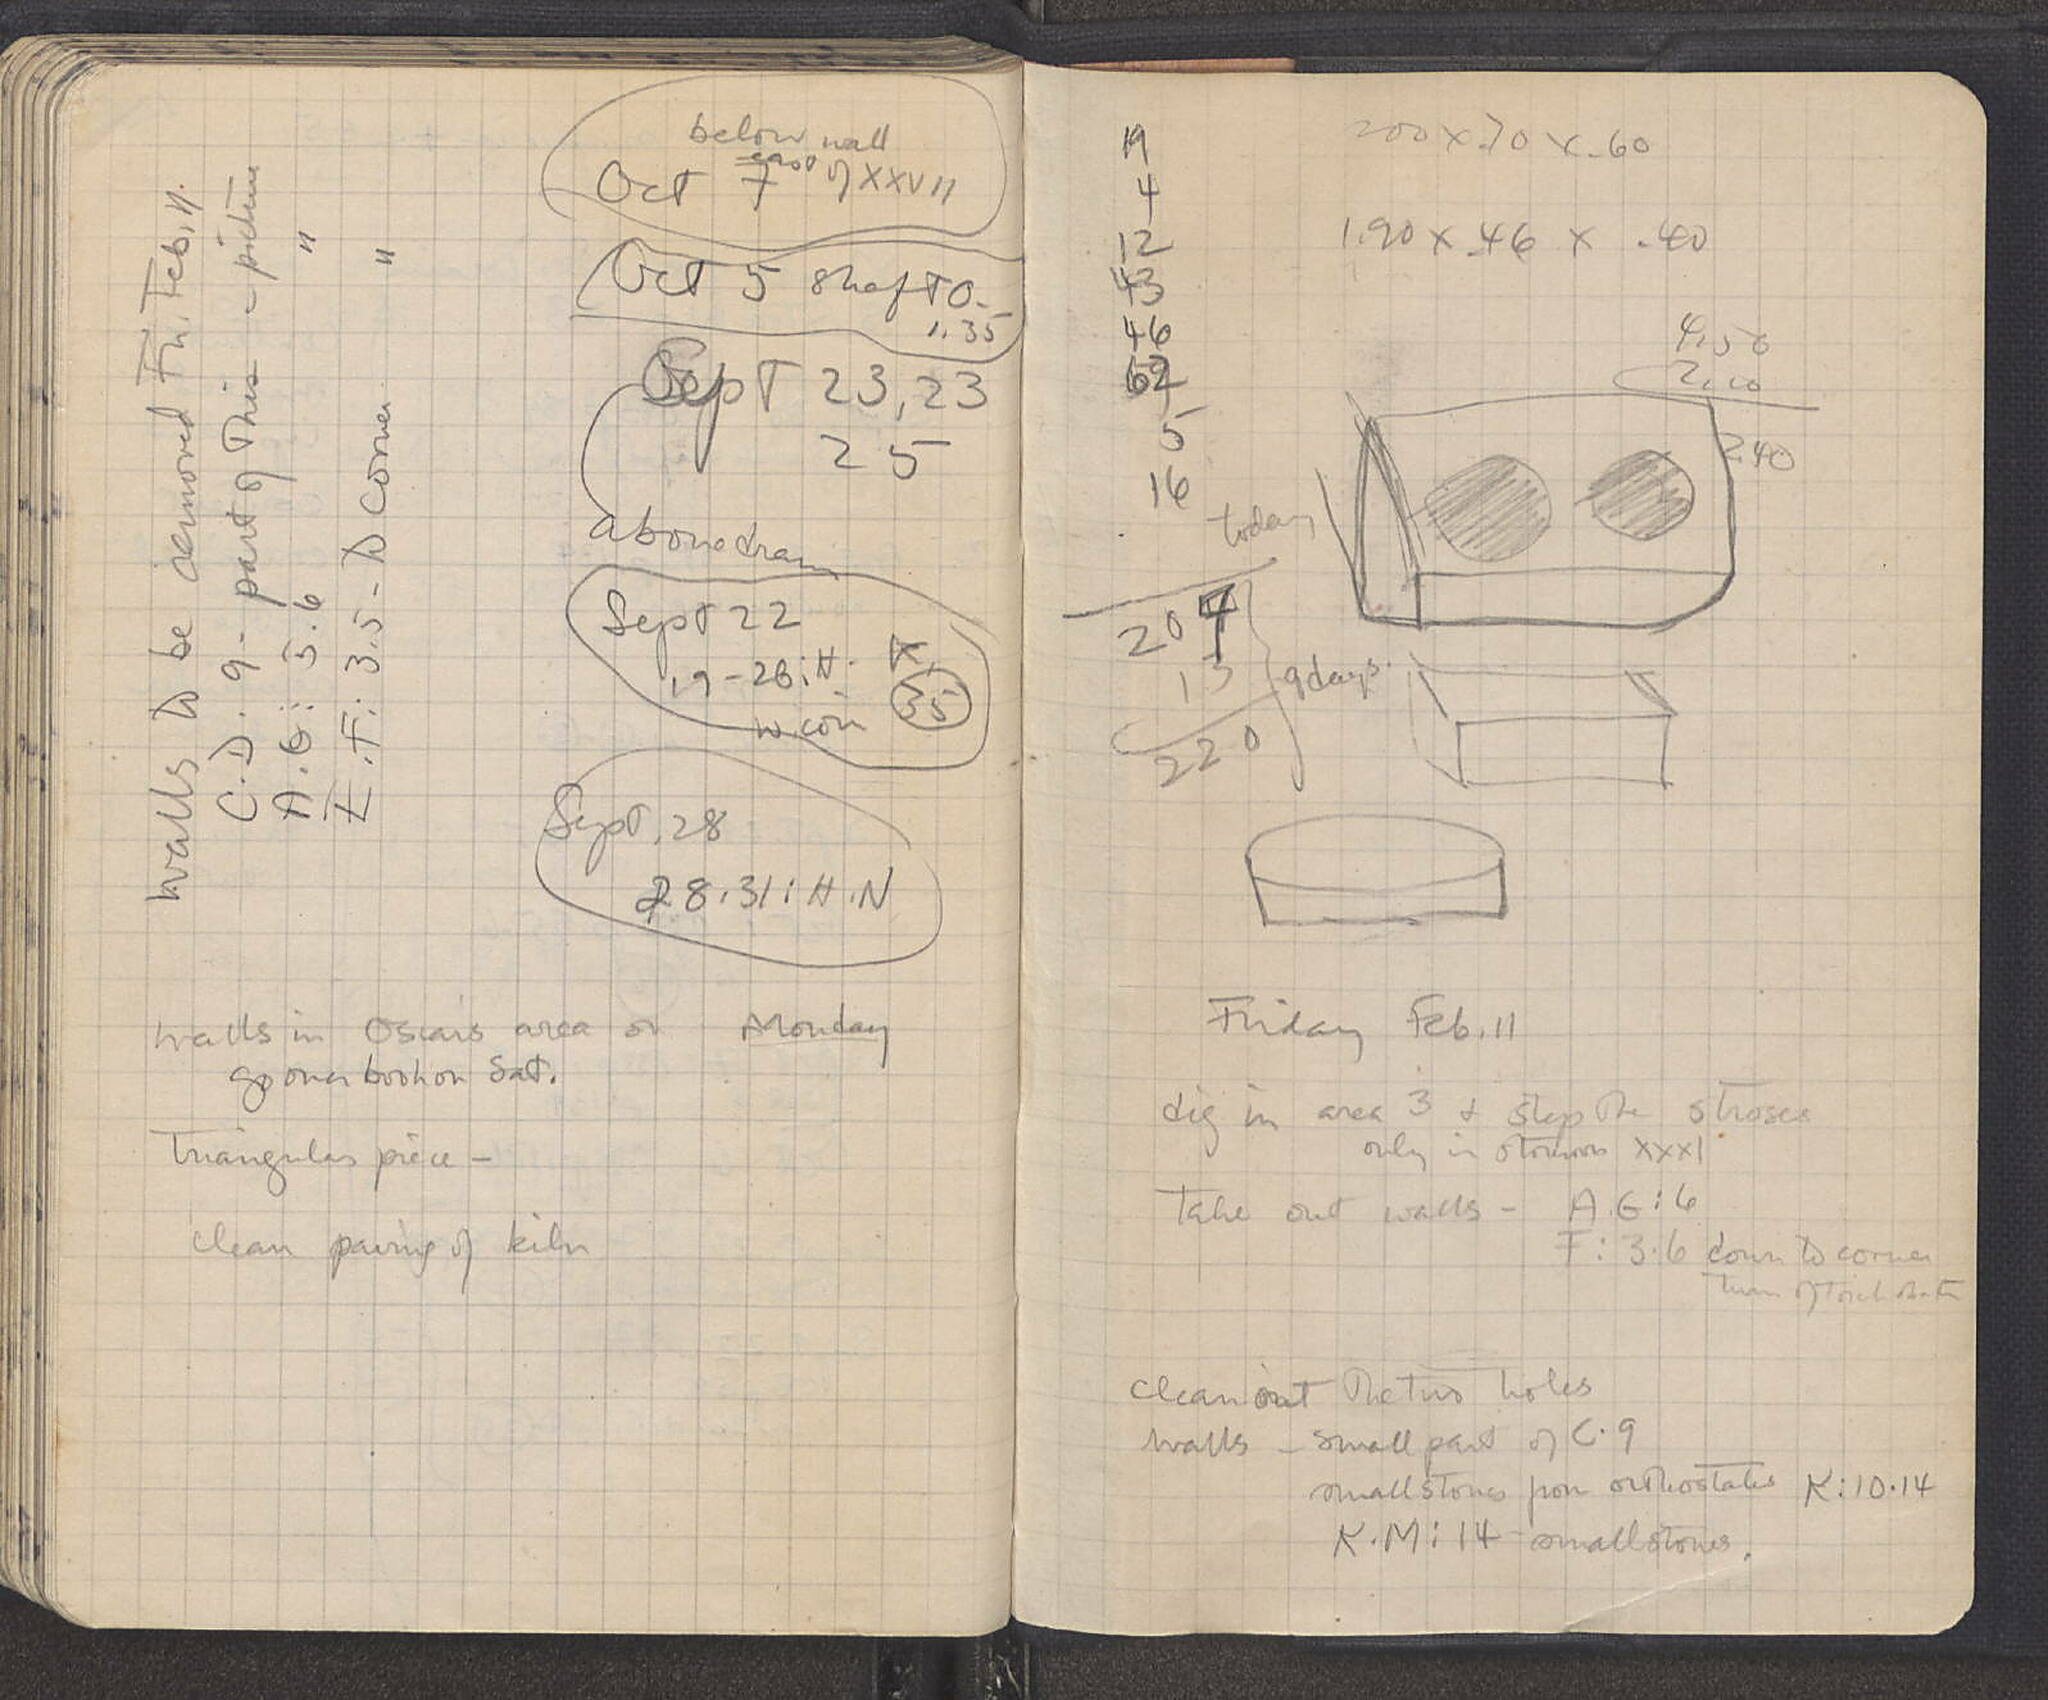 Walls to be removed Fri. Feb. 11.
C.D. 9 - part of this - picture
A.G: 5.6 "
E.F: 3.5 - to corner "
below wall
east of XXVII
Oct 7
Oct 5 shaft 0-
1.35
Sept 23, 23
25
above drain
Sept 22
19-26: H.
w. coin
35
Sept. 28
28.31: H.N
walls in Oscar's area on Monday
go over book on Sat.
Triangular piece -
clean paving of kiln
19
4
12
43
46
62
5
16
today
207
13
220
9 days.
200 x .70 x .60
1.90 x .46 x .40
4.50
2.10
2.40
Friday Feb. 11
dig in area 3 & stop the stroses
only in stowon XXXI
Take out walls - A.G: 6
F: 3.6 down to corner
turn of
clean out the two holes
walls - small part of C.9
small stones from orthostates K: 10.14
K.M: 14 small stones.